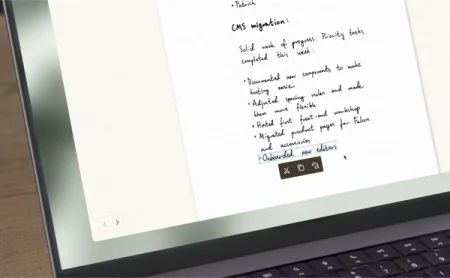 • Patrick
CMS migration:
Solid week of progress. Priority tasks
completed this week:
• Documented new components to make
testing easier
• Adjusted spacing rules and made
them more flexible
• Hosted first front-end workshop
• Migrated product pages for Falcon
and accessories
• Onboarded new editors